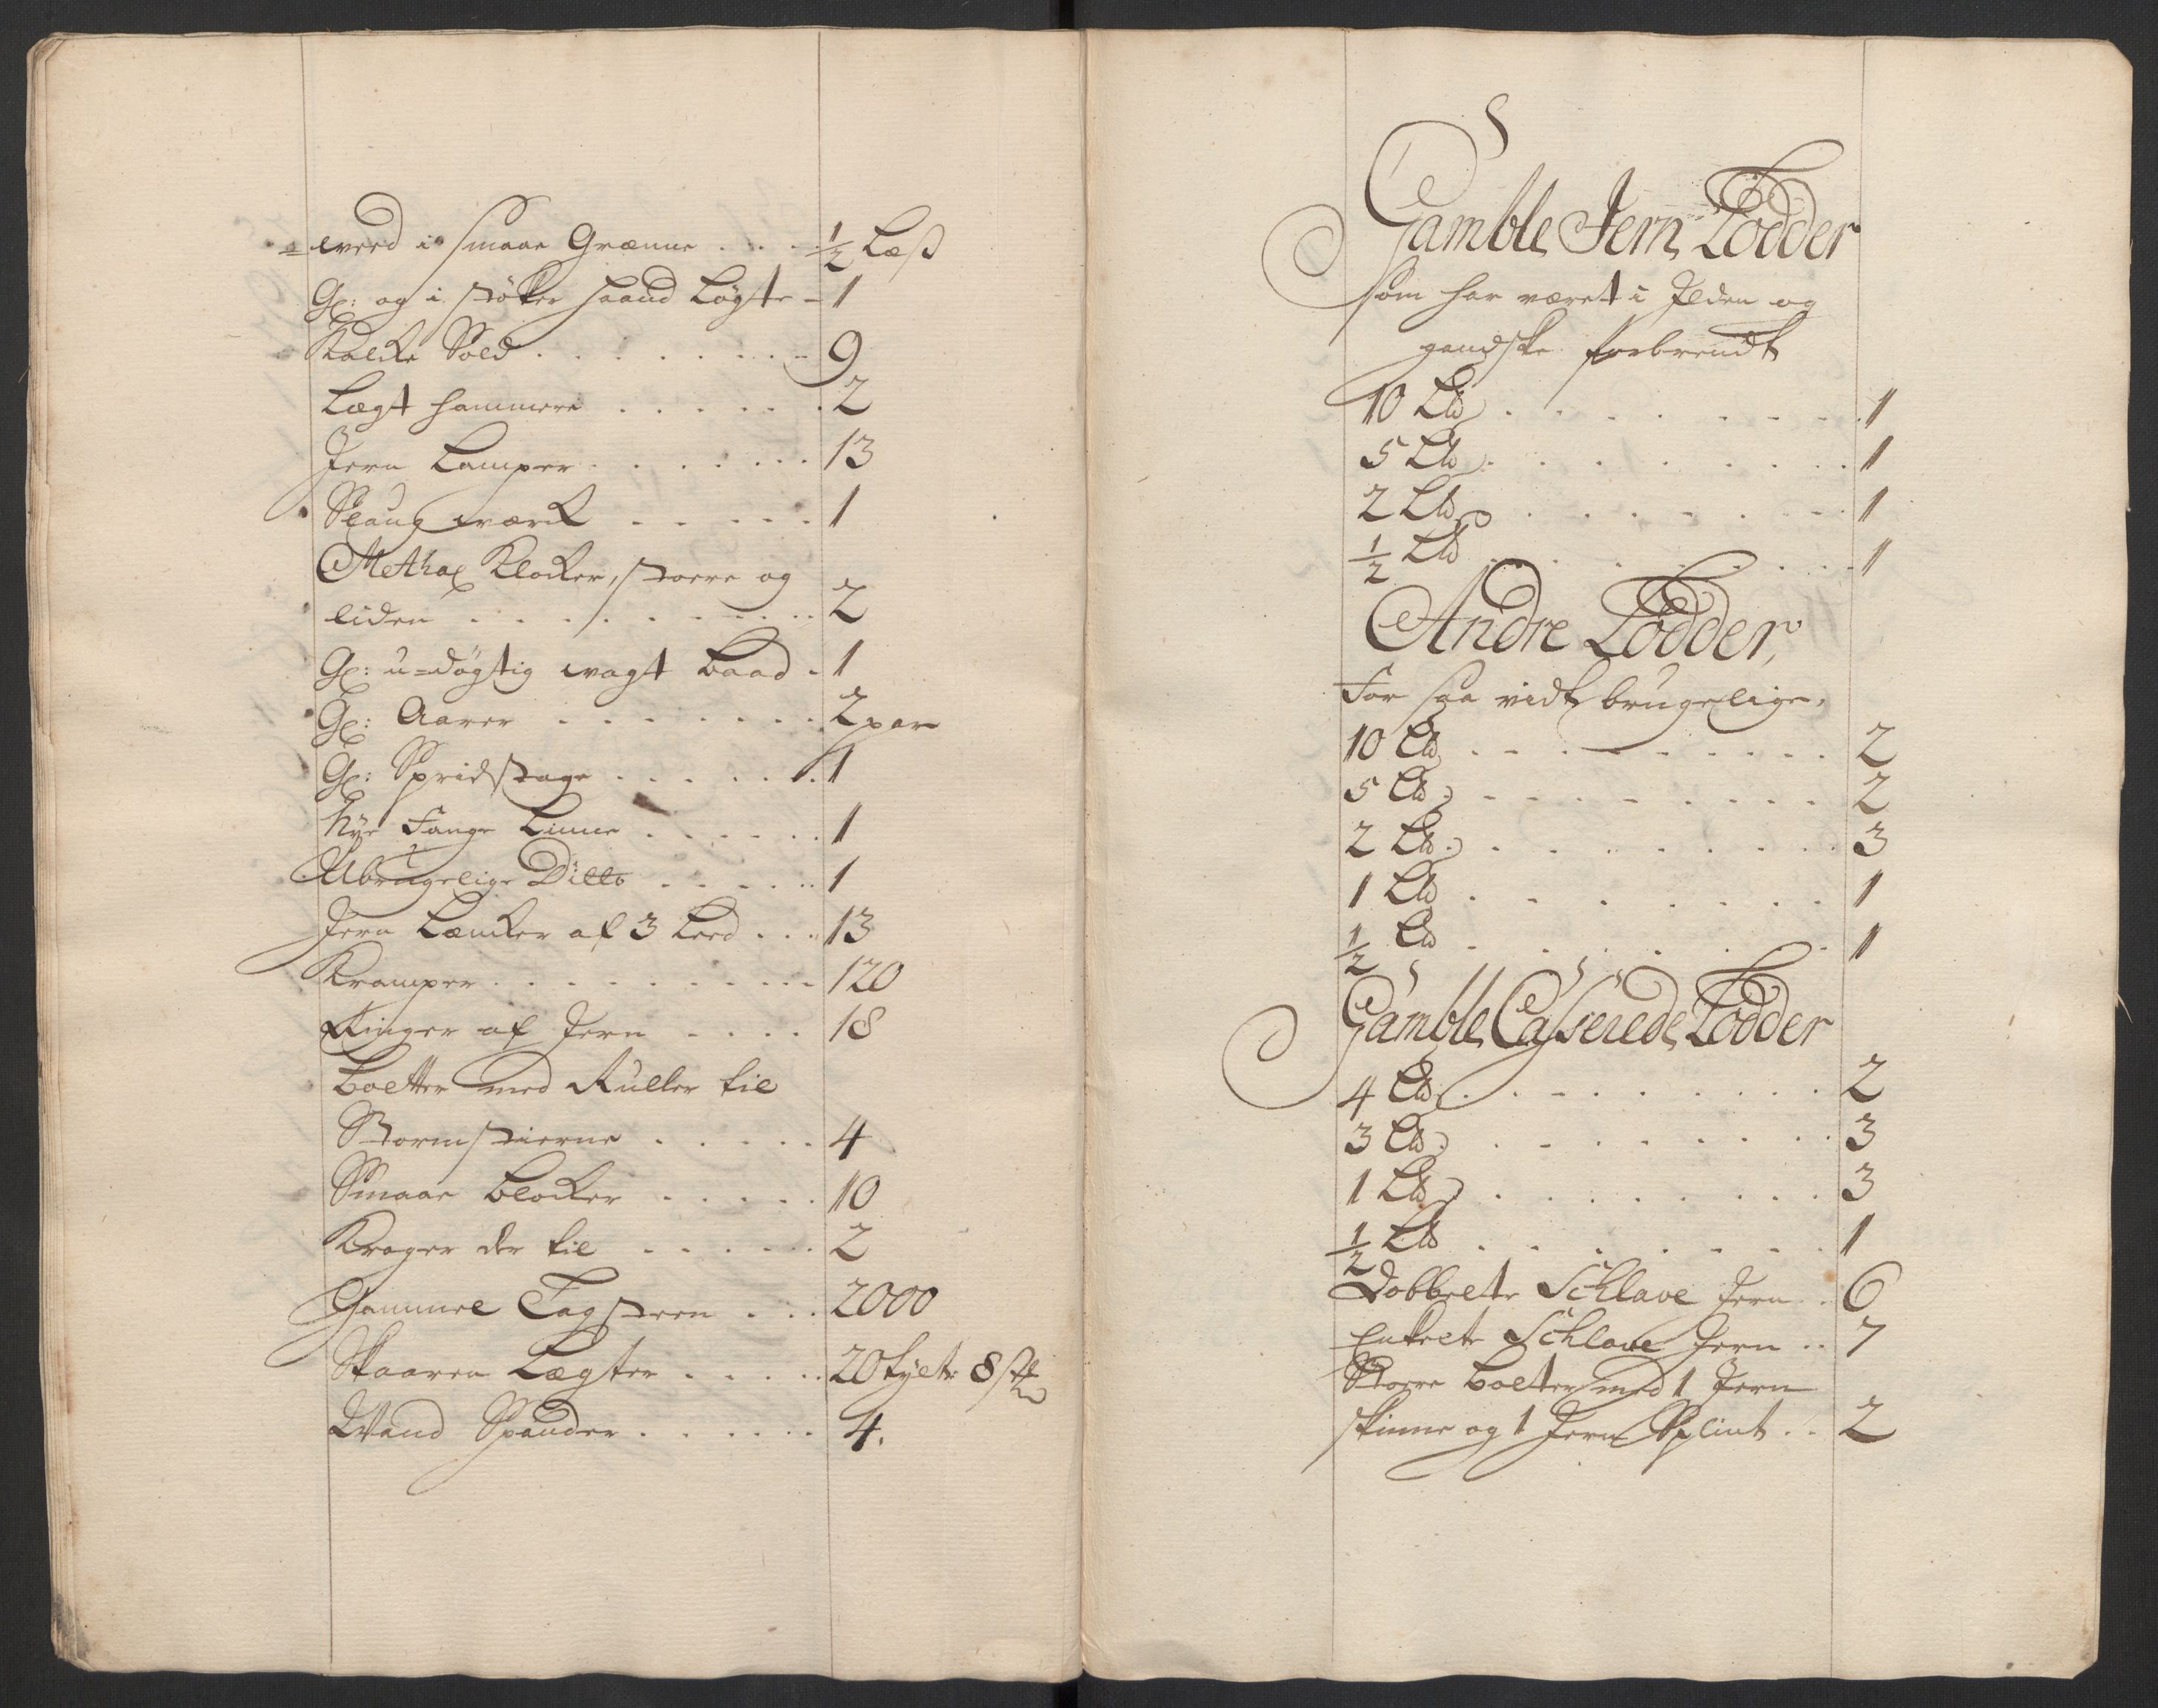 weed i smaae Grænne . . . ½ Læß
Gl: og i støker haand Løgte - 1
Kalcke Sold . . . . . . . . 9
Lægt hammere . . . . . . 2
Jern Lamper . . . . . . . 13
Slaug værck . . . . . 1
Methal Klocker, stoere og
liden . . . . . . . . . . 2
Gl: u=døgtig wagt baad . 1
Gl: Aarer . . . . . . . . 2 par
Gl: Spridstage . . . . . . 1
Nye Fange Linne . . . . . . 1
Ubrugelige Ditto . . . . . . 1
Jern Læncker af 3 Leed . . . 13
Kramper . . . . . . . . . . 120
Ringer af Jern . . . . 18
Bolter med Ruller til
Stormstierne . . . . . 4
Smaae Blocker . . . . . 10
Krager der til . . . . . 2
Gammel Tagsteen . . . 2000
Skaaren Lægter . . . . . 20 tylt 8 st
Wand Spander . . . . . . 4.
Gamble Jern Lodder
som har været i Jlden og
gandske forbrendt
10 Ld . . . . . . . . . 1
5 Ld . . . . . . . . . 1
2 Ld . . . . . . . . . 1
½ Ld . . . . . . . . . 1
Andre Lodder,
For saa vidt brugelige,
10 Ld . . . . . . . . . 2
5 Ld . . . . . . . . . 2
2 Ld . . . . . . . . . 3
1 Ld . . . . . . . . 1
½ Ld . . . . . . . 1
Gamble Casserede Lodder
4 Ld . . . . . . . . . 2
3 Ld . . . . . . . . . 3
1 Ld . . . . . . . . . 3
½ Ld . . . . . . . . 1
Dobbelte Schlave Jern . 6
Enkelte Schlave Jern . . 7
Stoere bolter med 1 Jern
skinne og 1 Jern Splint . . 2